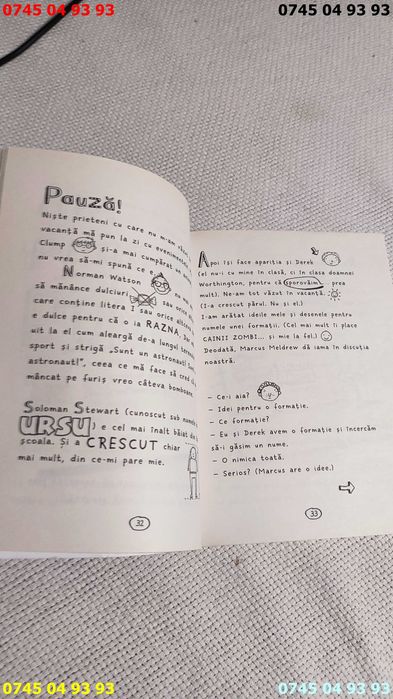 0745 04 93 93
0745 04 93 93
Pauză!
Niște prieteni cu care nu m-am
vacanță mă pun la zi cu evenimen
Clump și-a mai cumpărat un
nu vrea să-mi spună ce e
Norman Watson nu mai
să mănânce dulciuri sau orice
care conține litera I sau orice
e dulce pentru că o ia RAZNA.
uit la el cum aleargă de-a lungul
sport și strigă „Sunt un astronaut!
astronaut!”, ceea ce mă face să cred că
mâncat pe furiș vreo câteva bomboane.
Soloman Stewart (cunoscut sub numele
URSU) e cel mai înalt băiat din
școala. Și a CRESCUT chiar
mai mult, din ce-mi pare mie.
32
Apoi își face apariția și Derek
(el nu-i cu mine în clasă, ci în clasa doamnei
Worthington, pentru că sporovăim prea
mult). Ne-am tot văzut în vacanță.
(I-a crescut părul. Nu și el.)
I-am arătat ideile mele și desenele pentru
numele unei formații. (Cel mai mult îi place
CAINII ZOMBI... și mie la fel.)
Deodată, Marcus Meldrew dă iama în discuția
noastră.
– Ce-i aia?
– Idei pentru o formație.
– Ce formație?
– Eu și Derek avem o formație și încercăm
să-i găsim un nume.
– O nimica toată.
– Serios? (Marcus are o idee.)
33
0745 04 93 93
0745 04 93 93